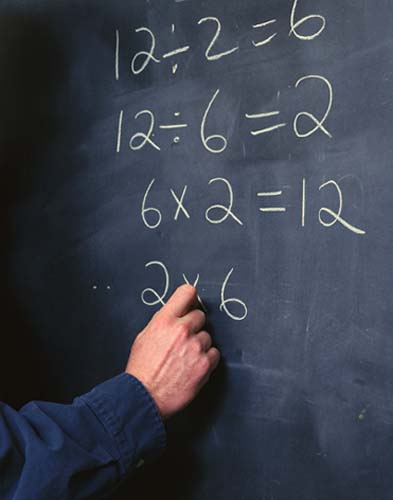 12÷2=6
12÷6=2
6×2=12
2×6